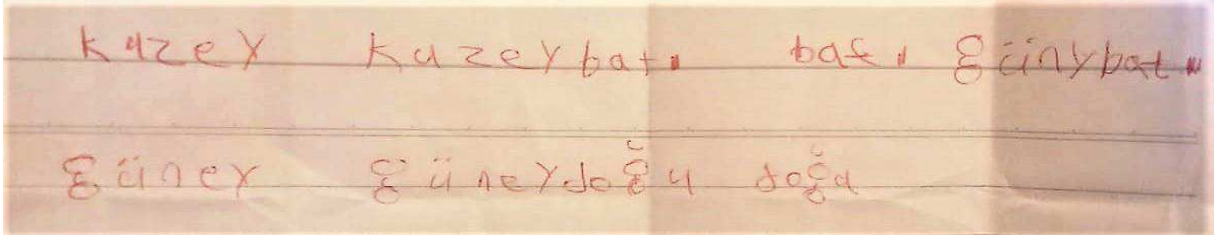 kuzey kuzeybatı batı günybatı
güney güneydoğu doğu